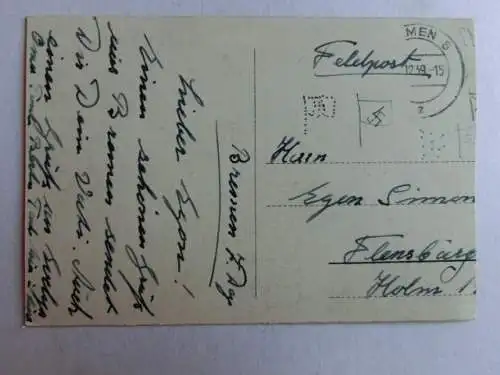 Bremen 7. Dez.
Lieber Egon!
Einen schönen Gruß
aus Bremen sendet
Dir Dein Vati. Auch
einen Gruß an
Oma und
Feldpost
MEN 5
12.39.-15
z
Herrn
Egon Simon
Flensburg
Holm